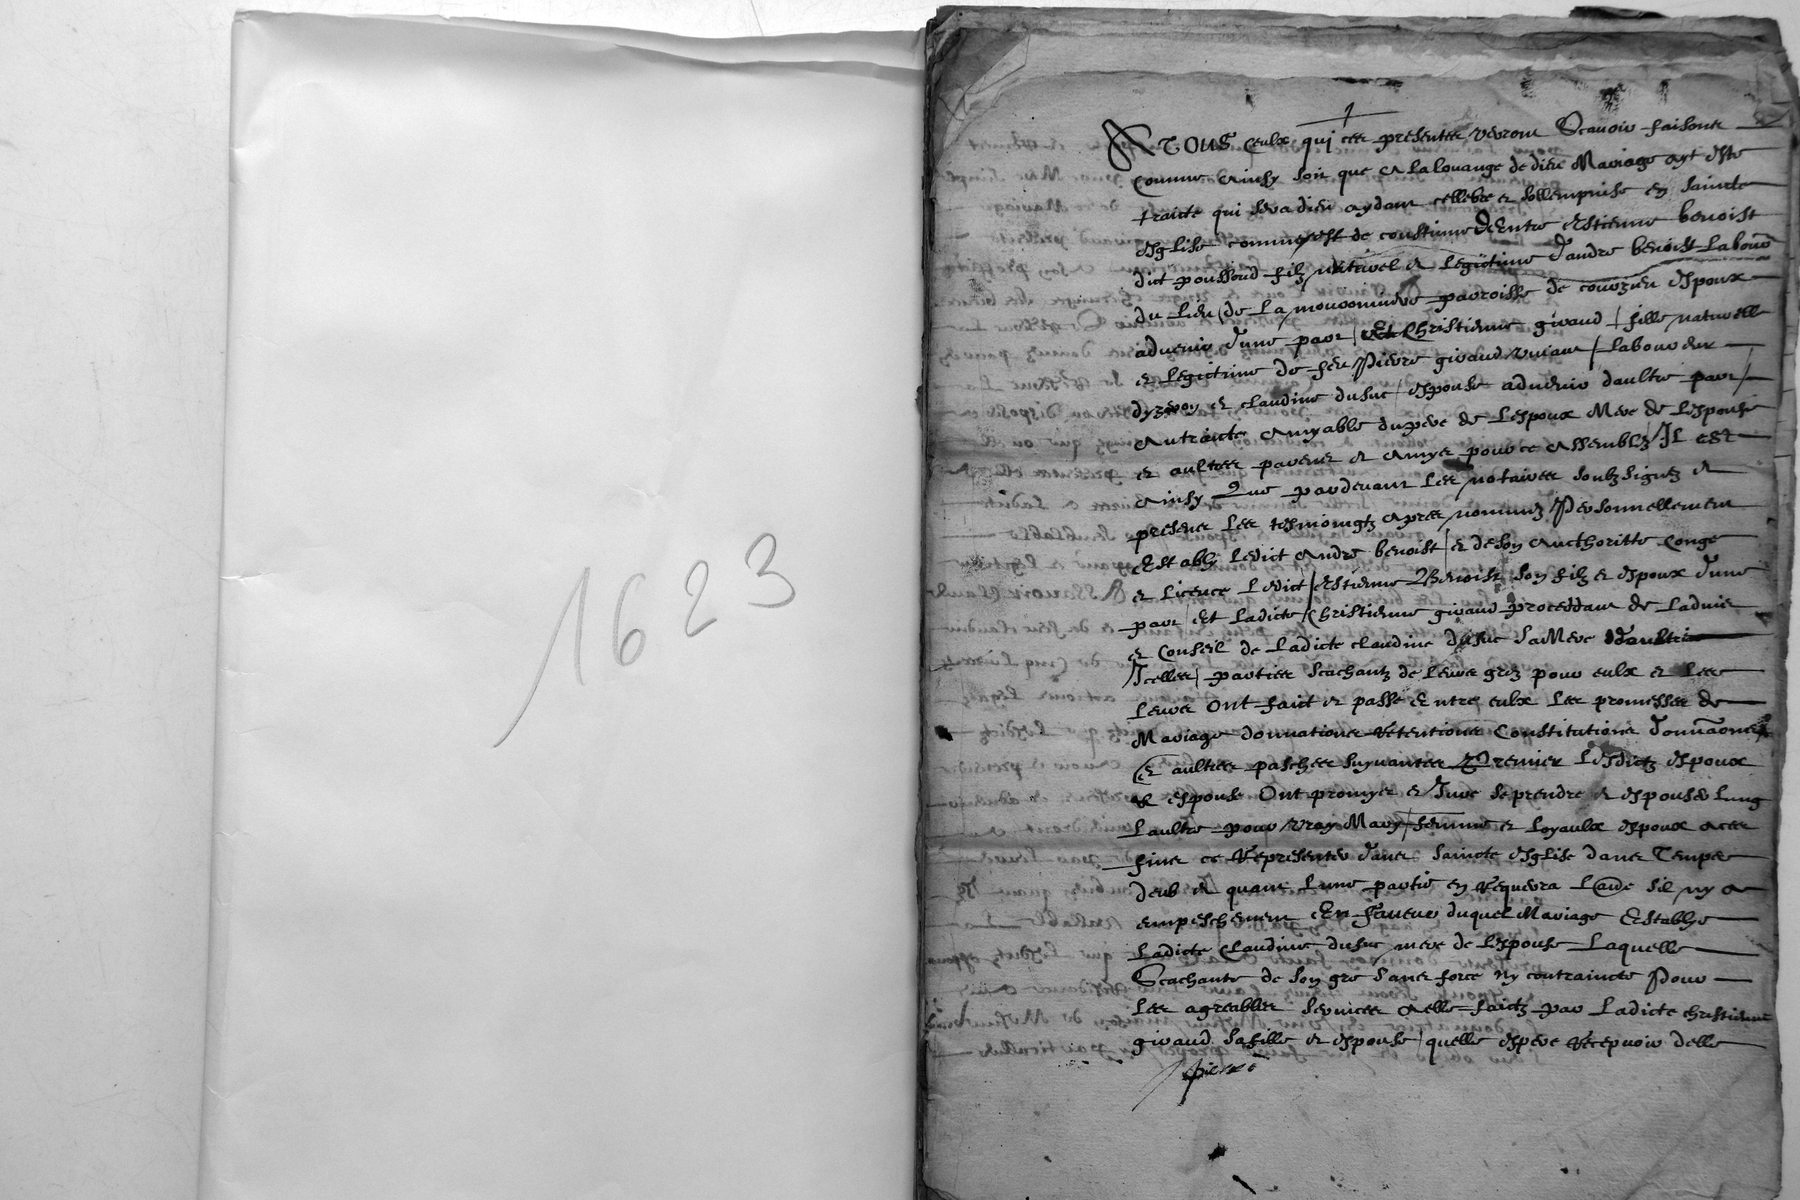 1623
A TOUS ceulx qui ces presentes verront Scavoir faisons
Comme Ainsy soit que A la louange de dieu Mariage ayt este
traicte qui sera dieu aydant cellebre et sollempnise en saincte
esglise comme est de coustume Dentre estienne benoist
dict poussoud filz naturel et legitime d'andre benoist laboure
du lieu de la paroisse de courzieu espoux
advenir d'une part Et Christienne giraud fille naturelle
et legictime de feu Pierre giraud vivant laboureur
dyzeron et claudine dusuc espouse advenir daultre part
A traicte Amyable du pere de lespoux Mere de lespouse
et aultres parens et Amys pour ce Assemblez Il est
Ainsy Que pardevant les notaires soubzsignez et
presens les tesmoingtz Apres nommez Personnellement
Establi ledict Andre benoist et de son Aucthoritte Conge
et licence ledict estienne Benoist son filz et espoux d'une
part Et ladicte Christienne giraud proceddant de ladvis
et Conseil de ladicte claudine dusuc sa Mere
Icelles parties scachantz de leurs grez pour eulx et les
leurs Ont faict et passe Entre eulx les promesses de
Mariage donnations Retentions Constitutions
et aultres pasches suyvantes Premier lesdictz espoux
et espouse Ont promys et Jure se prendre et espouser lung
laultre pour vray Mary femme et loyaulx espoux a ces
fins ce Representer dans saincte esglise dans Temps
deub et quant lune partie en Requerra sil ny a
empeschement En faveur duquel Mariage Establye
Ladicte Claudine dusuc mere de lespouse Laquelle
Scachante de son gre sans force ny contraincte Pour
les agreables services a elle faictz par Ladicte christienne
giraud sa fille et espouse quelle espere Recepvoir delle